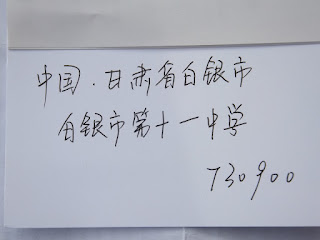 中国.甘肃省白银市
白银市第十一中学
730900